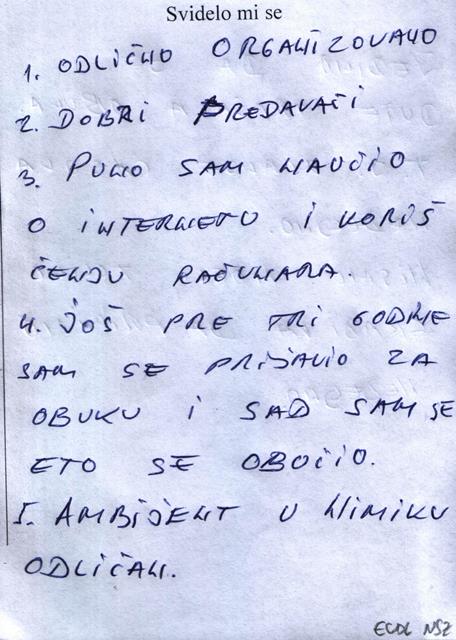 Svidelo mi se
1. ODLIČNO ORGANIZOVANO
2. DOBRI PREDAVAČI
3. PUNO SAM NAUČIO
O INTERNETU I KORIŠ
ĆENJU RAČUNARA.
4. JOŠ PRE TRI GODINE
SAM SE PRIJAVIO ZA
OBUKU I SAD SAM SE
ETO SE OBUČIO.
5. AMBIJENT U NIMIKU
ODLIČAN.
ECDL NSZ